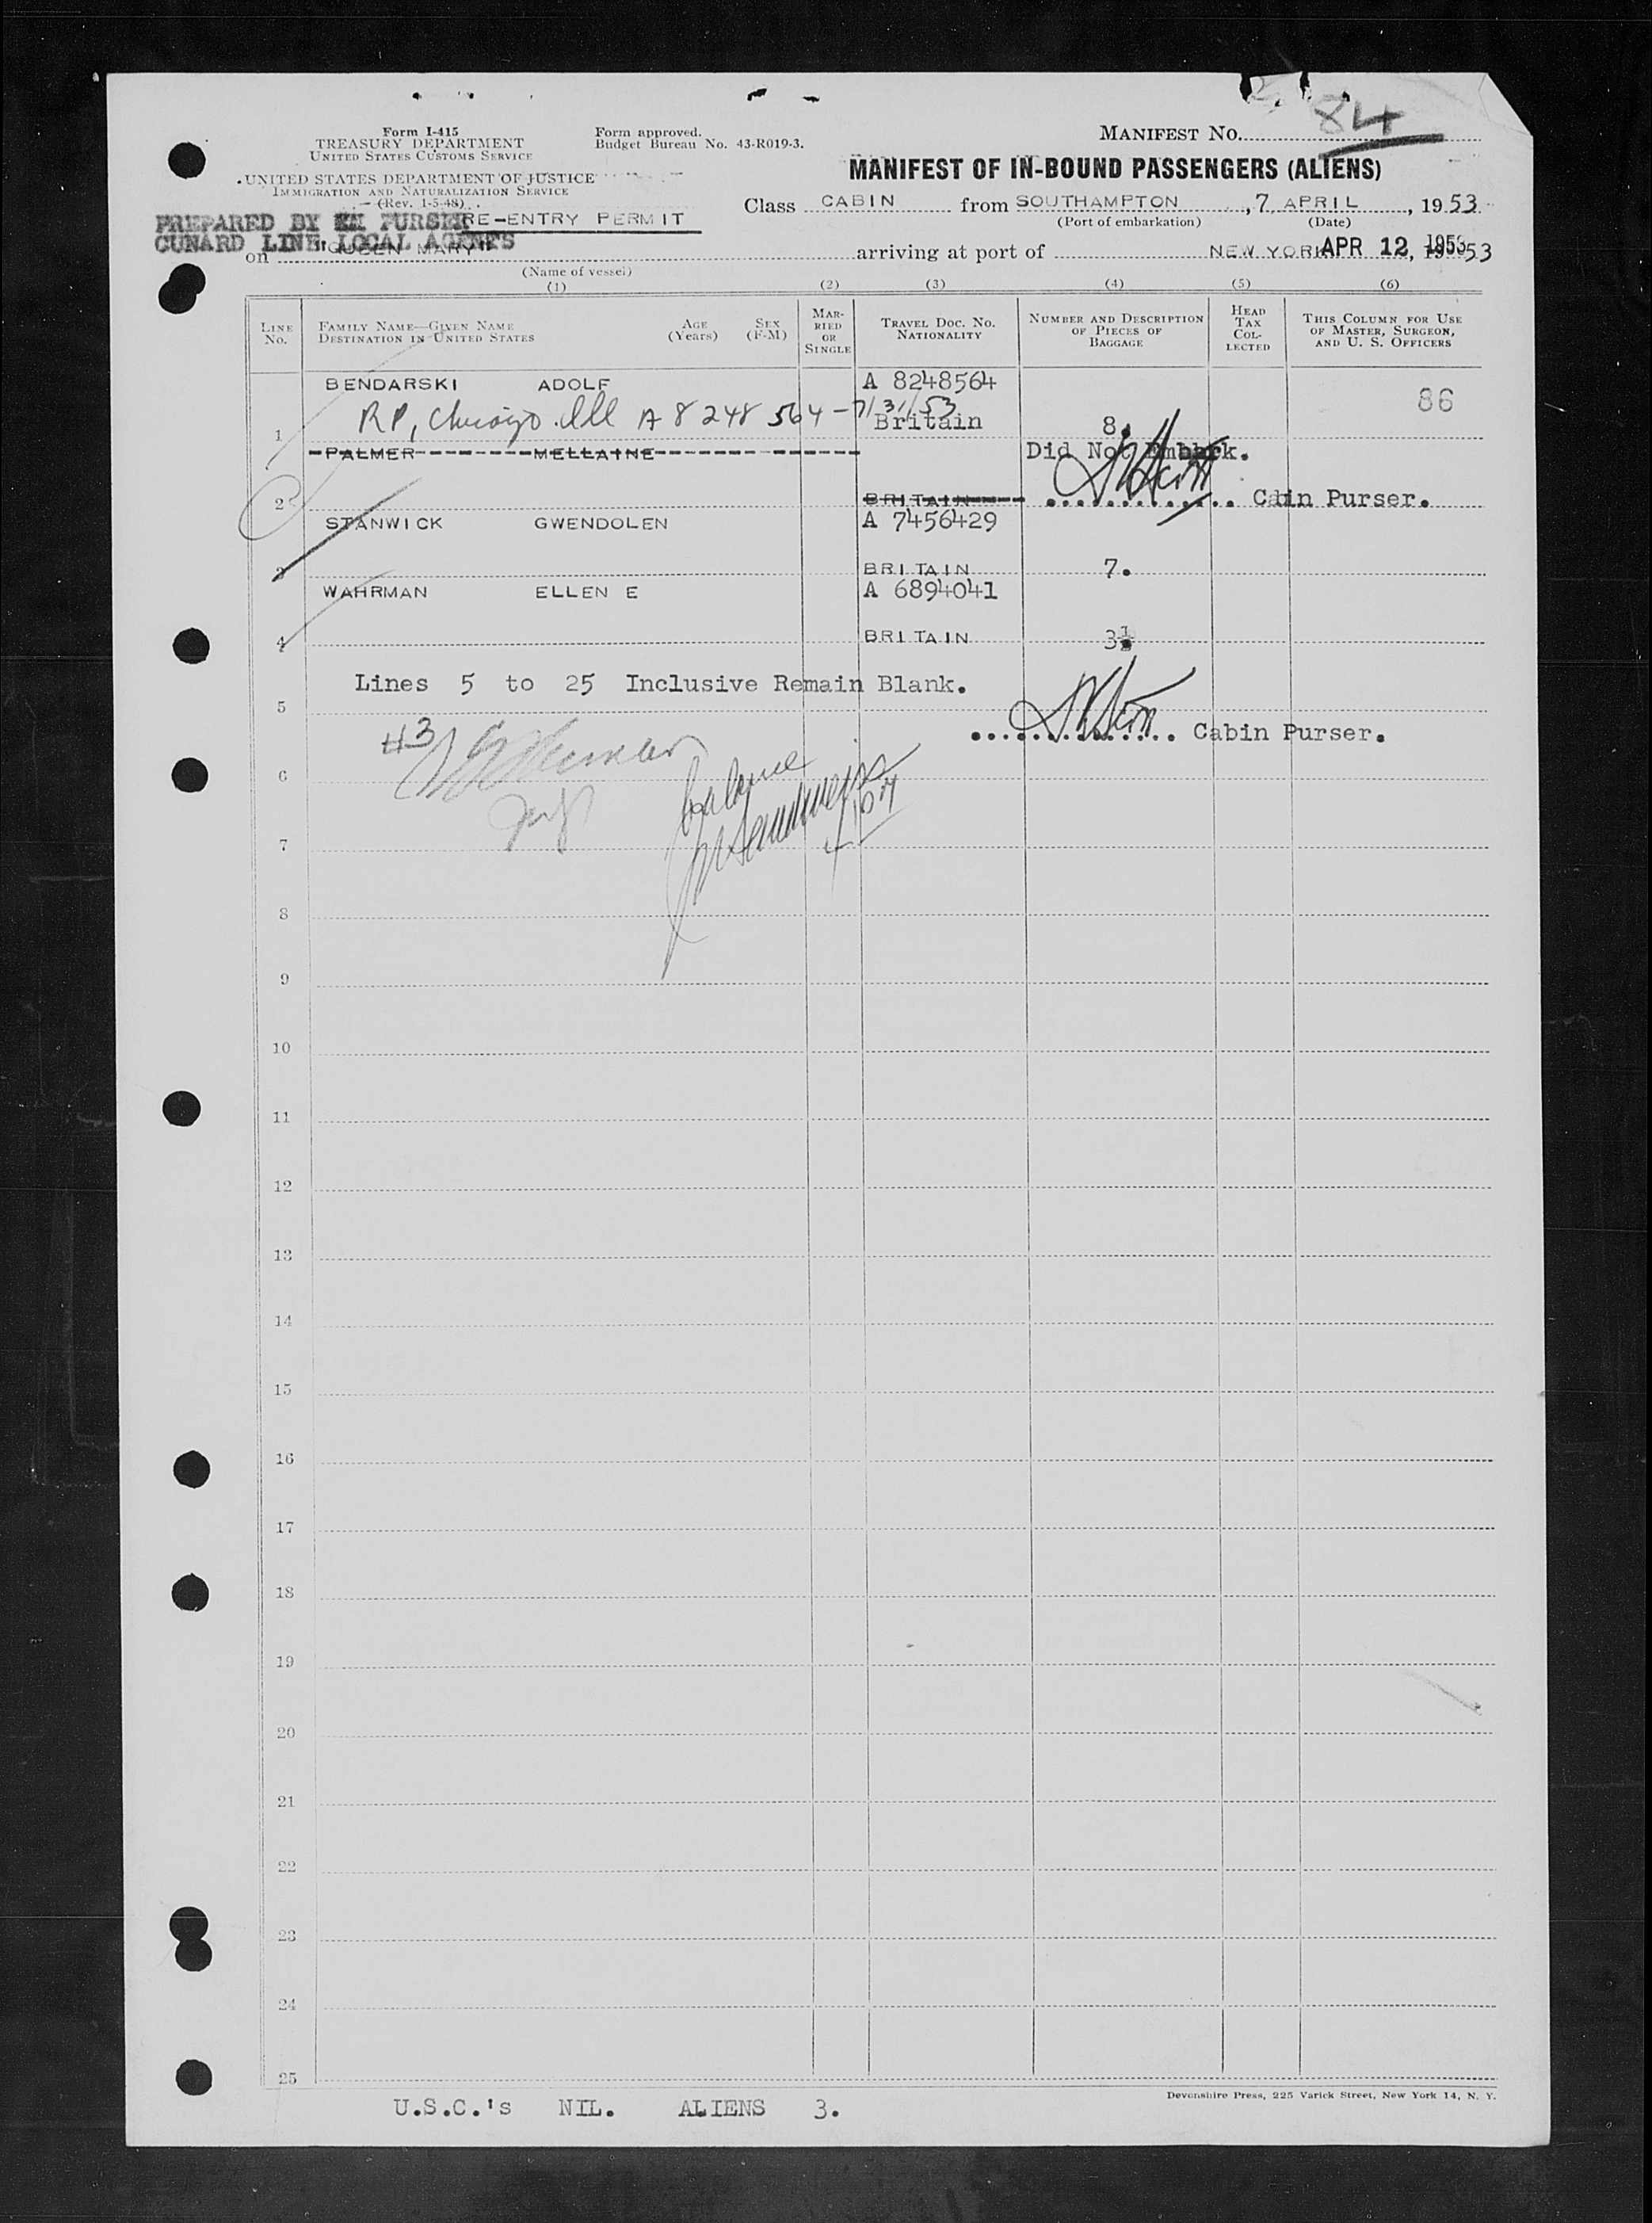 84
Form I-415
TREASURY DEPARTMENT
UNITED STATES CUSTOMS SERVICE
UNITED STATES DEPARTMENT OF JUSTICE
IMMIGRATION AND NATURALIZATION SERVICE
(Rev. 1-5-48)
Form approved.
Budget Bureau No. 43-R019-3.
MANIFEST NO.
MANIFEST OF IN-BOUND PASSENGERS (ALIENS)
Class CABIN from SOUTHAMPTON, 7 APRIL, 1953
(Port of embarkation) (Date)
PREPARED BY PURSER RE-ENTRY PERMIT
CUNARD LINE LOCAL AGENTS
on "QUEEN MARY" arriving at port of NEW YORK APR 12, 1953 53
(Name of vessel)
(1) (2) (3) (4) (5) (6)
LINE NO. FAMILY NAME—GIVEN NAME DESTINATION IN UNITED STATES AGE (Years) SEX (F-M) MARRIED OR SINGLE TRAVEL DOC. NO. NATIONALITY NUMBER AND DESCRIPTION OF PIECES OF BAGGAGE HEAD TAX COLLECTED THIS COLUMN FOR USE OF MASTER, SURGEON, AND U. S. OFFICERS
BENDARSKI ADOLF A 8248564 86
RP, Chicago. Ill A 8 248 564 - 7/31/53
1 Britain 8.
PALMER MELLAINE Did Not Embark.
2 BRITAIN Cabin Purser.
STANWICK GWENDOLEN A 7456429
3 BRITAIN 7.
WAHRMAN ELLEN E A 6894041
4 BRITAIN 3
Lines 5 to 25 Inclusive Remain Blank.
5
Cabin Purser.
#3
6
7
8
9
10
11
12
13
14
15
16
17
18
19
20
21
22
23
24
25
Devonshire Press, 225 Varick Street, New York 14, N. Y.
U.S.C.'s NIL. ALIENS 3.